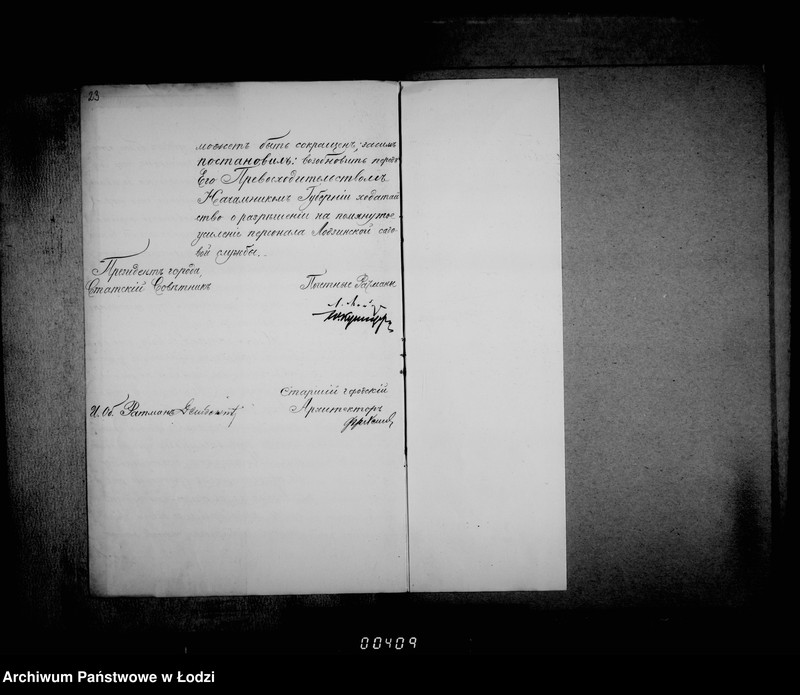 23
можетъ быть сокращенъ,
постановилъ: возобновить передъ
Его Превосходительствомъ
Начальникомъ Губерніи ходатай
ство о разрѣшеніи на помянутое
усиленіе персонала Лодзинской
вой службы.
Президентъ города,
Статскій Совѣтникъ
Почетные Ратманы
Старшій городской
И. об. Ратманъ
Архитекторъ
00409
Archiwum Państwowe w Łodzi